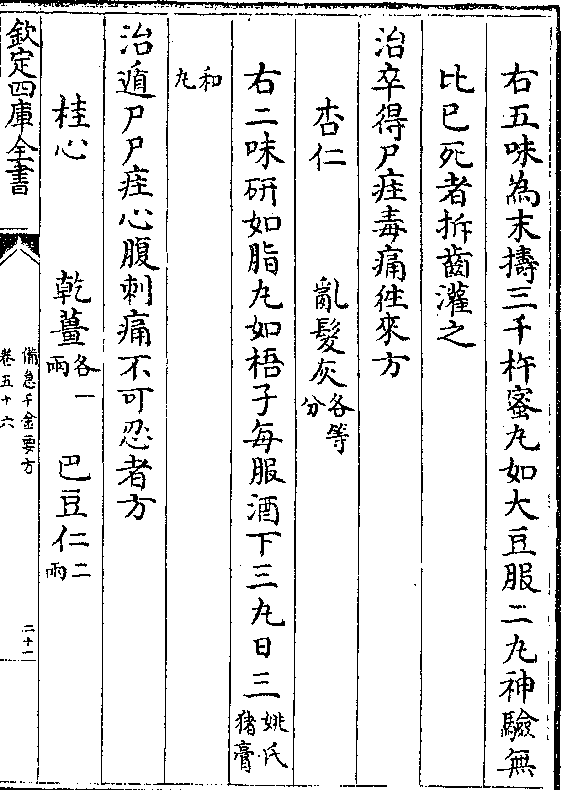 右五味為末擣三千杵蜜丸如大豆服二丸神驗無
比已死者拆齒灌之
治卒得尸疰毒痛往來方
杏仁 亂髮灰各等分
右二味研如脂丸如梧子每服酒下三丸日三姚氏猪膏
和丸
治遁尸尸疰心腹刺痛不可忍者方
桂心 乾薑各一兩 巴豆仁二兩
欽定四庫全書
備急千金要方
卷五十六
二十一